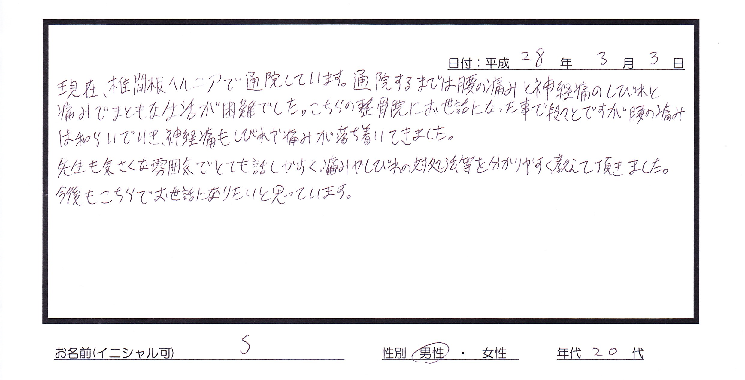 日付：平成 28 年 3 月 3 日
現在、椎間板ヘルニアで通院しています。通院するまでは腰の痛みと神経痛のしびれと
痛みでまともな生活が困難でした。こちらの整骨院にお世話になった事で段々とですが腰の痛み
は和らいでいき、神経痛もしびれで痛みが落ち着いてきました。
先生も気さくな雰囲気でとても話しやすく、痛みやしびれの対処法等を分かりやすく教えて頂きました。
今後もこちらでお世話になりたいと思っています。
お名前(イニシャル可) S 性別 男性 ・ 女性 年代 20 代